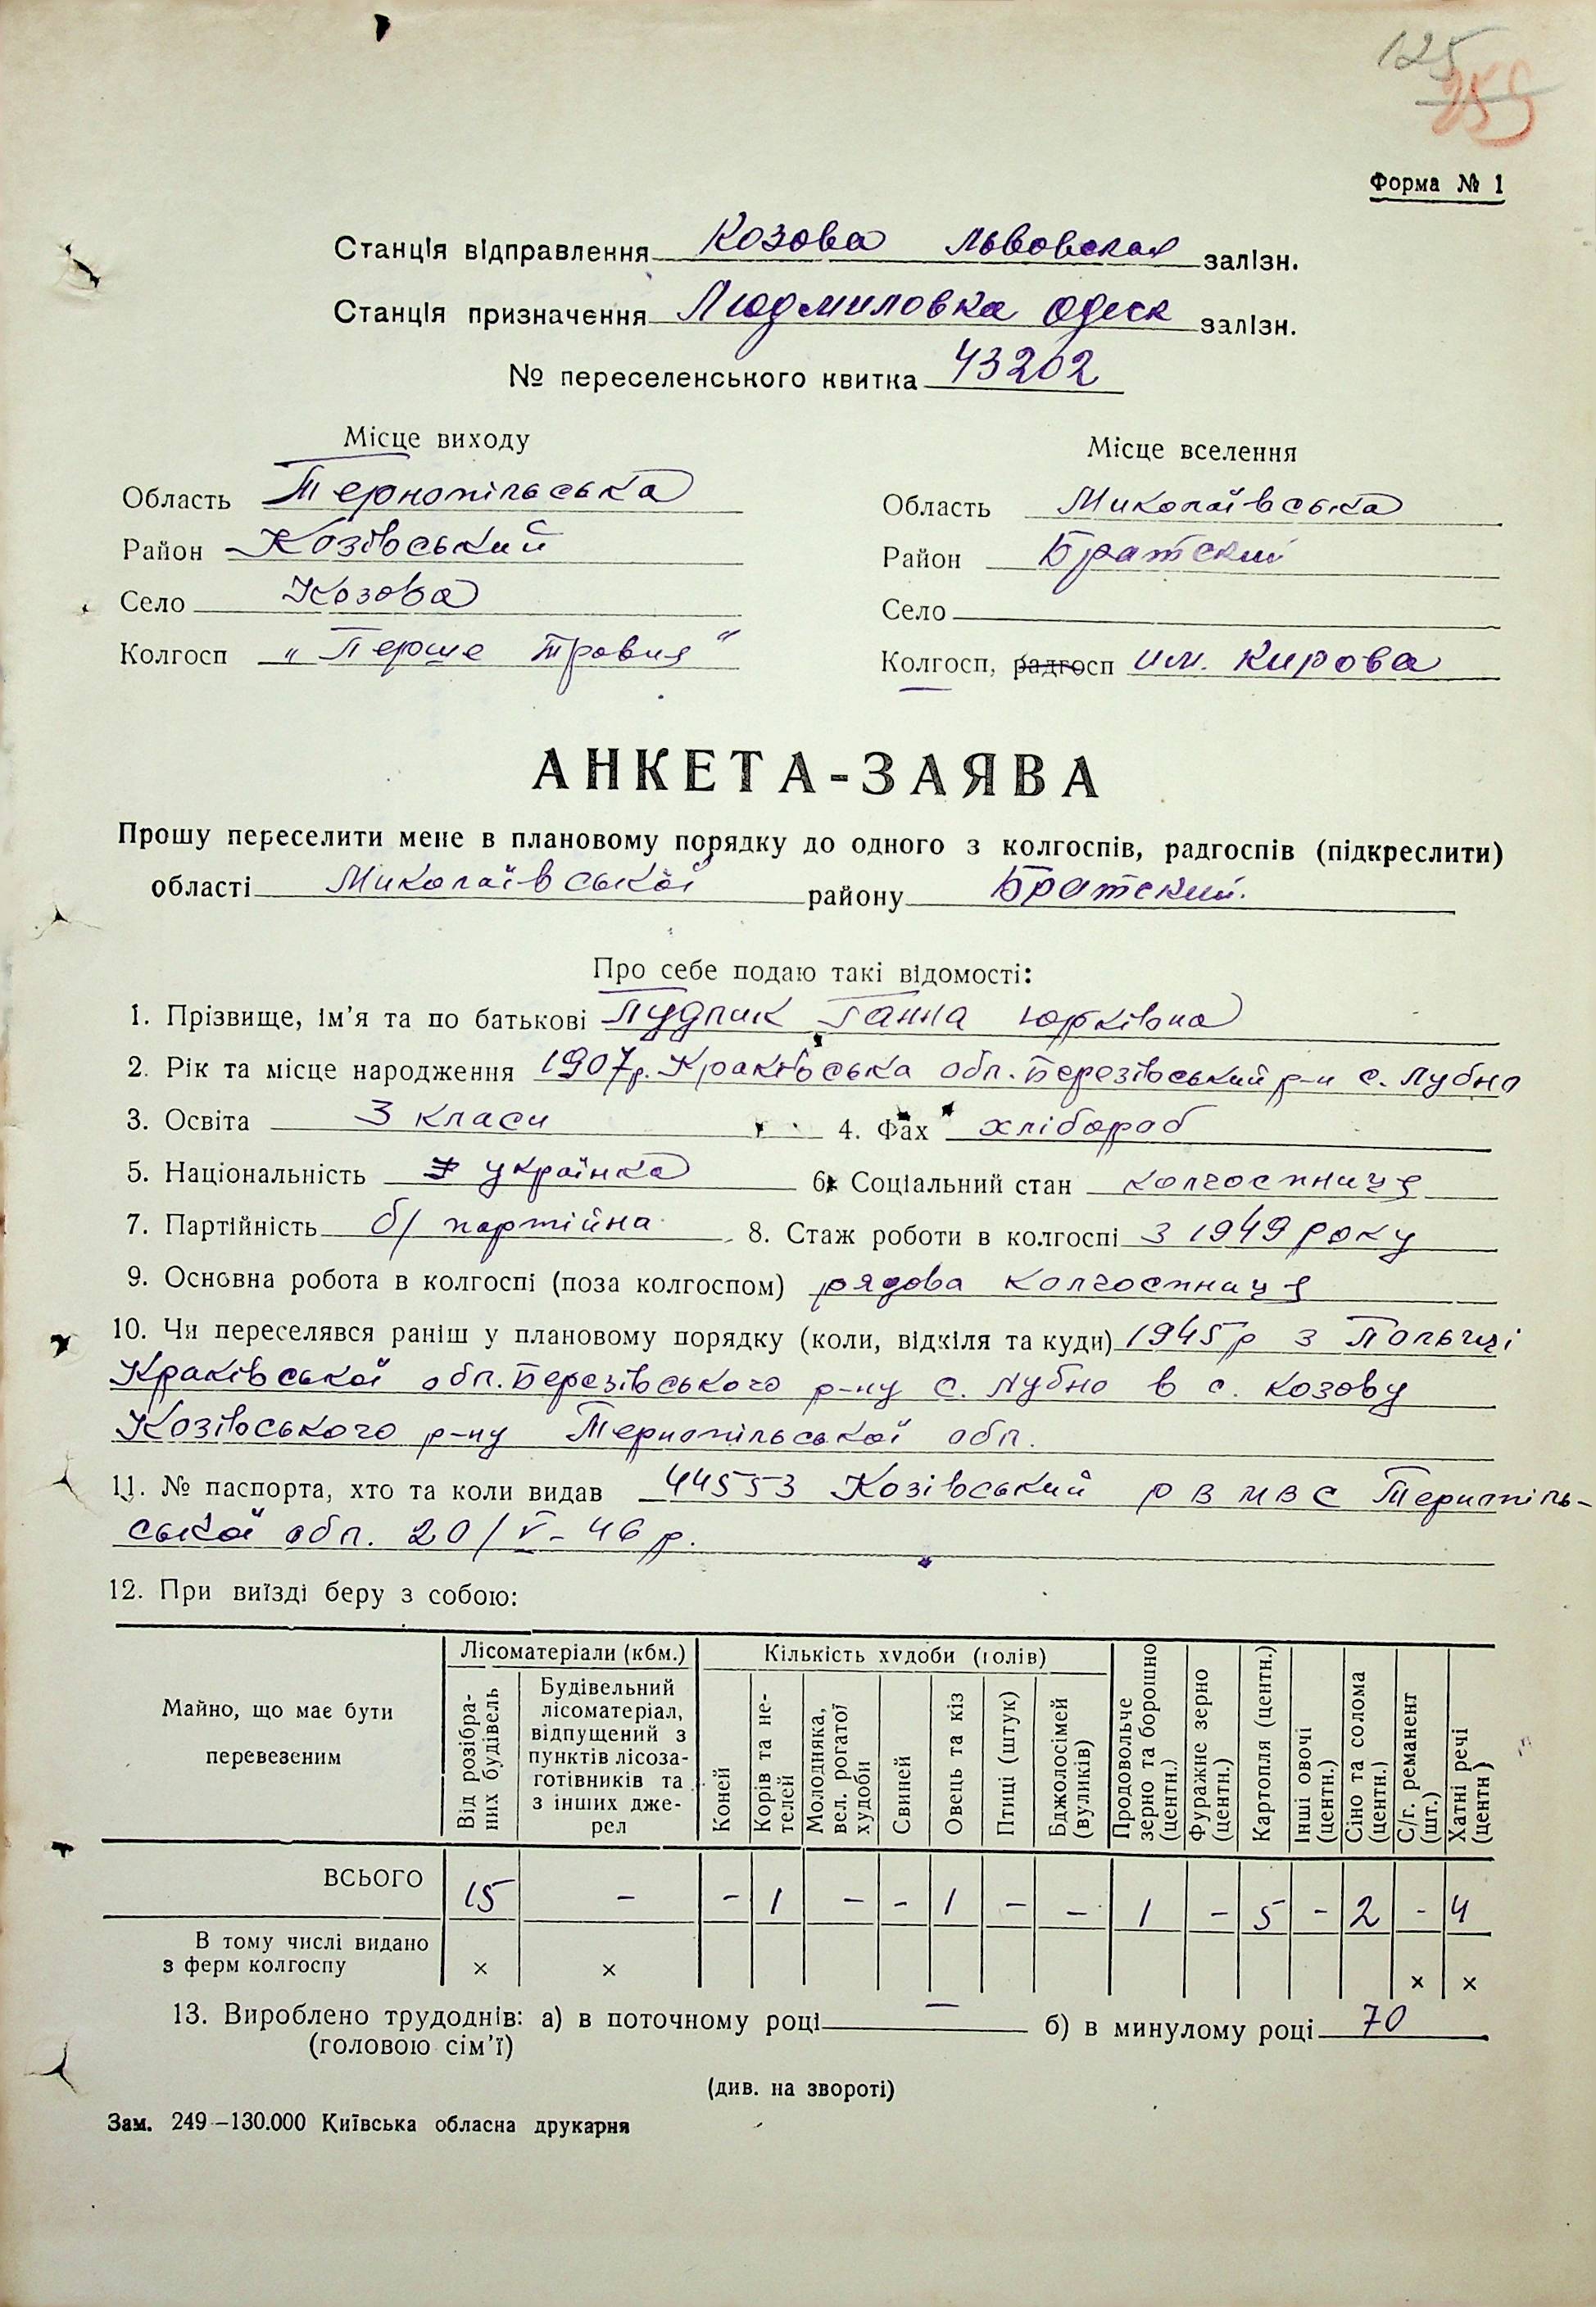 125
255
Форма № 1
Станція відправлення Козова Львовская залізн.
Станція призначення Людмиловка Одеск залізн.
№ переселенського квитка 43202
Місце виходу
Область Тернопільська
Район Козівський
Село Козова
Колгосп „Перше травня"
Місце вселення
Область Миколаївська
Район Братский
Село
Колгосп, радгосп им. Кирова
АНКЕТА-ЗАЯВА
Прошу переселити мене в плановому порядку до одного з колгоспів, радгоспів (підкреслити)
області Миколаївської району Братский.
Про себе подаю такі відомості:
1. Прізвище, ім'я та по батькові Ганна Юрківна
2. Рік та місце народження 1907р. Краківська обл. Березівський р-н с. Лубно
3. Освіта 3 класи 4. Фах хлібороб
5. Національність українка 6. Соціальний стан колгоспниця
7. Партійність б/партійна 8. Стаж роботи в колгоспі з 1949 року
9. Основна робота в колгоспі (поза колгоспом) рядова колгоспниця
10. Чи переселявся раніш у плановому порядку (коли, відкіля та куди) 1945р з Польщі
Краківської обл. Березівського р-ну с. Лубно в с. Козову
Козівського р-ну Тернопільської обл.
11. № паспорта, хто та коли видав 44553 Козівський РВ МВС Тернопіль-
ської обл. 20/V-46р.
12. При виїзді беру з собою:
Майно, що має бути перевезеним
Лісоматеріали (кбм.)
Від розібраних будівель
Будівельний лісоматеріал, відпущений з пунктів лісозаготівників та з інших джерел
Кількість худоби (голів)
Коней
Корів та нетелей
Молодняка, вел. рогатої худоби
Свиней
Овець та кіз
Птиці (штук)
Бджолосімей (вуликів)
Продовольче зерно та борошно (центн.)
Фуражне зерно (центн.)
Картопля (центн.)
Інші овочі (центн.)
Сіно та солома (центн.)
С/г. реманент (шт.)
Хатні речі (центн)
ВСЬОГО 15 – – 1 – – 1 – – 1 – 5 – 2 – 4
В тому числі видано
з ферм колгоспу × × × ×
13. Вироблено трудоднів: а) в поточному році – б) в минулому році 70
(головою сім'ї)
(див. на звороті)
Зам. 249–130.000 Київська обласна друкарня